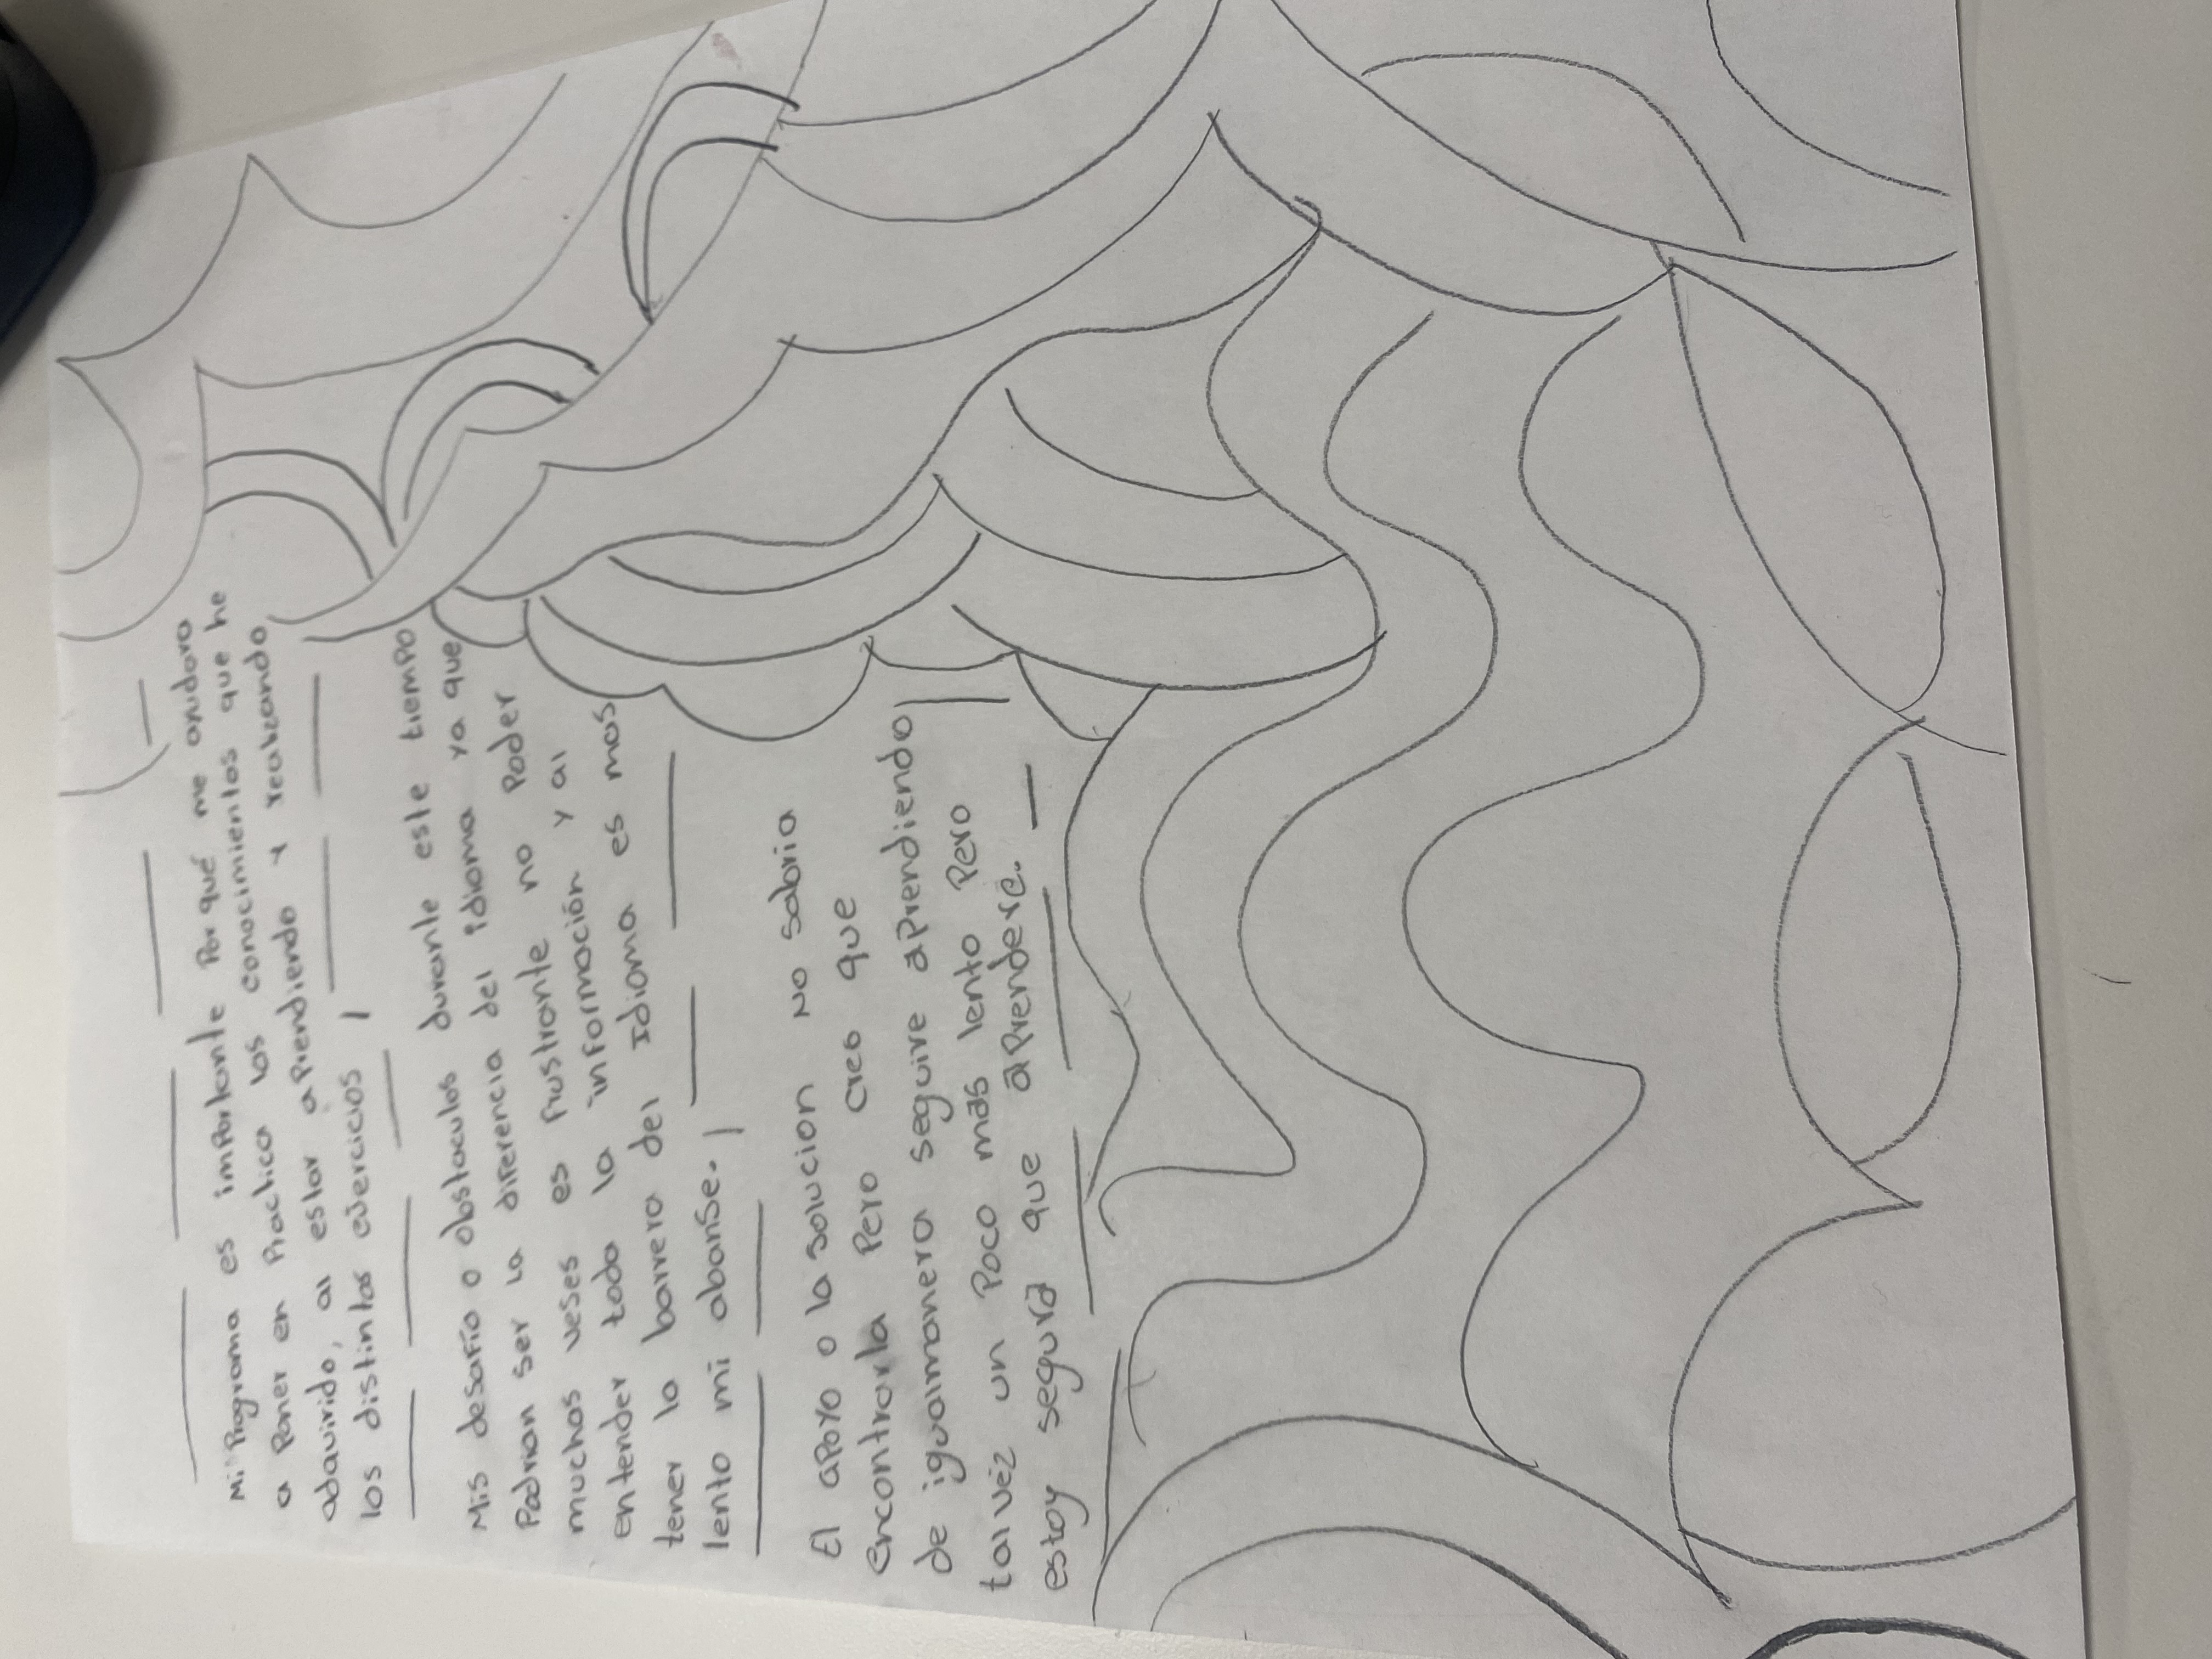 Mi Programa es importante Porqué me ayudara
a Poner en Practica los conocimientos que he
adquirido, al estar aprendiendo y realizando
los distintos ejercicios
Mis desafío o obstaculos durante este tiempo
Podrian ser la diferencia del idioma ya que
muchas veses es frustrante no Poder
entender toda la información y al
tener la barrera del Idioma es mas
lento mi abanse.
El apoyo o la solucion No sabria
encontrarla Pero creo que
de igualmanera seguire aprendiendo
talvéz un Poco mas lento Pero
estoy segura que aprendere.